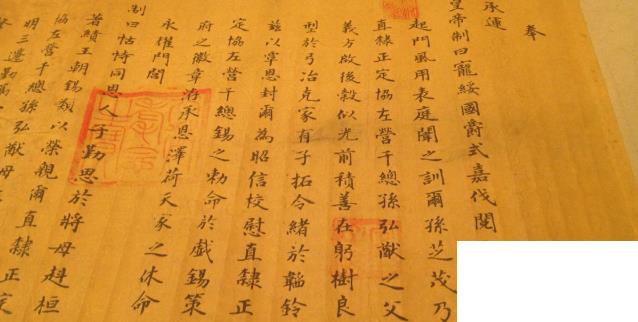 奉
承運
皇帝制曰寵綏國爵式嘉伐閱
起門風用表庭闈之訓爾孫芝茂乃
直隸正定協左營千總孫弘猷之父
義方啟後穀似光前積善在躬樹良
型於弓冶克家有子拓令緒於韜鈐
茲以覃恩封爾為昭信校慰直隸正
定協左營千總錫之勅命於戲錫策
府之徽章洊承恩澤荷天家之休命
永耀門閭
制曰怙恃同恩人子勤思於將母赳桓
著績王朝錫類以榮親爾直隸正定
協左營千總孫弘猷母
明三遷勤